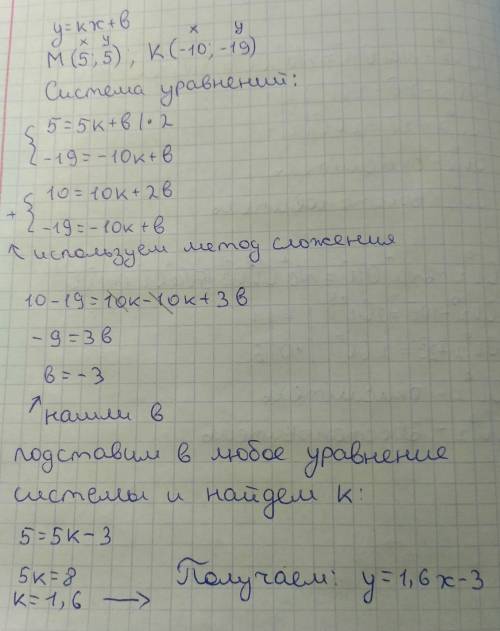 y=кx+в
x y x y
M(5; 5), K(-10; -19)
Система уравнений:
5=5к+в |·2
-19=-10к+в
+ 10=10к+2в
-19=-10к+в
↖ используем метод сложения
10-19=10к-10к+3в
-9=3в
в=-3
↗ нашли в
подставим в любое уравнение
системы и найдем к:
5=5к-3
5к=8
к=1,6 → Получаем: y=1,6x-3